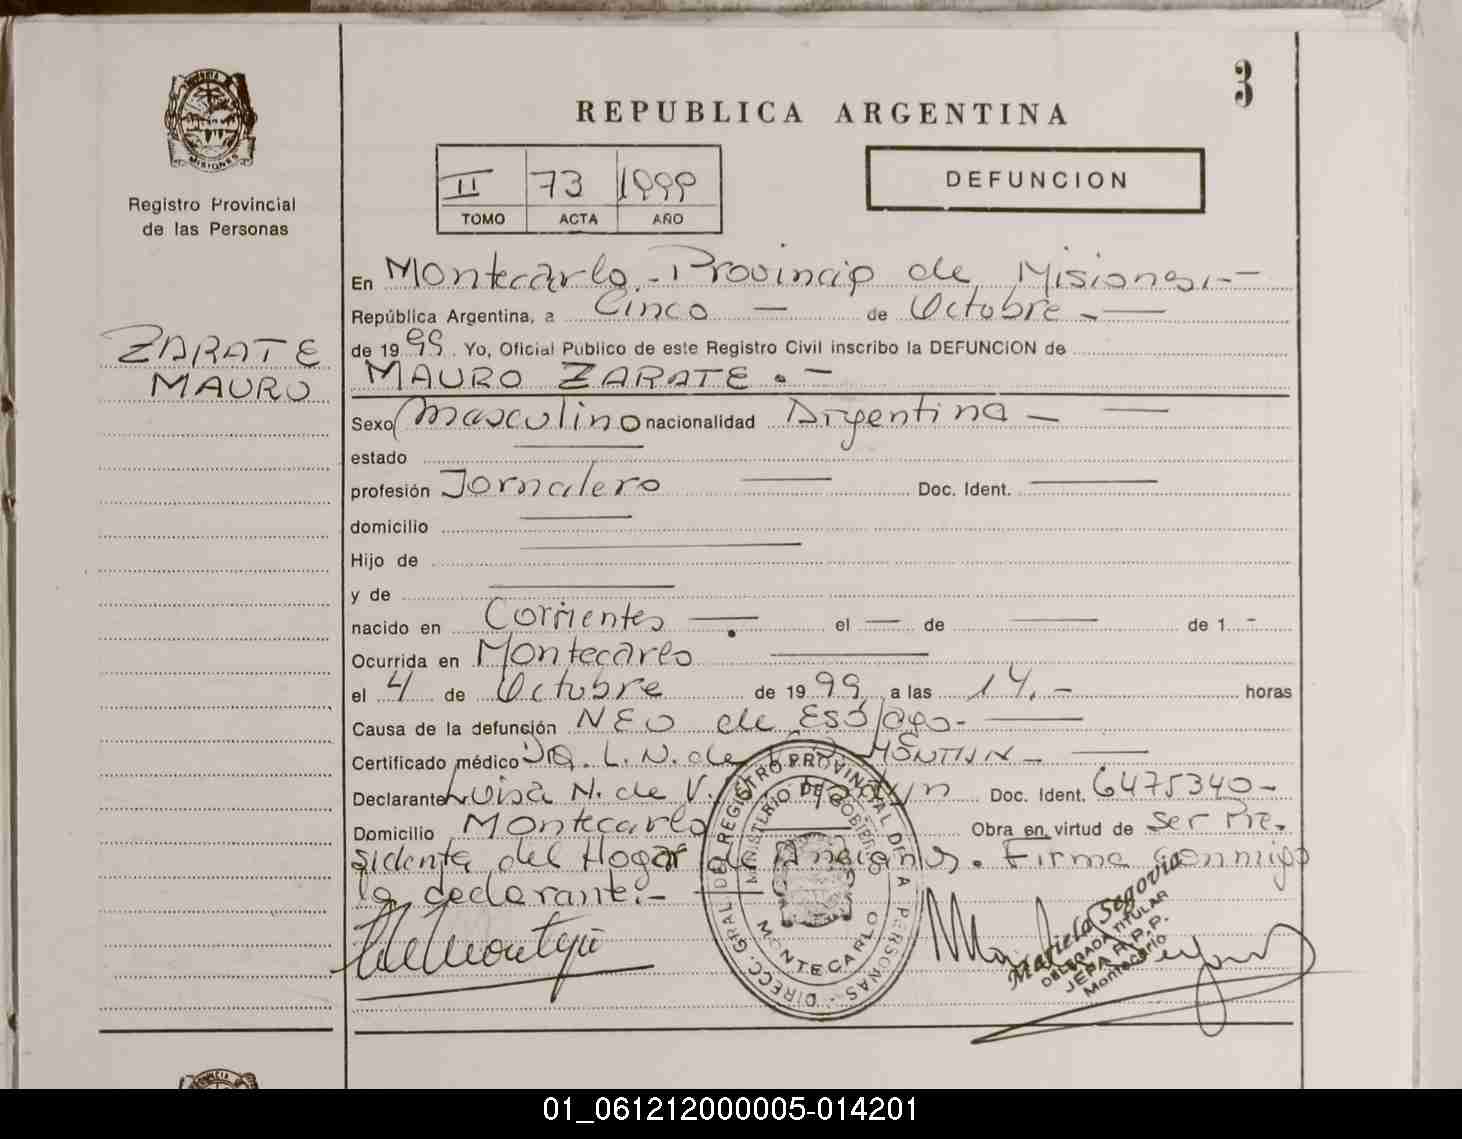 3
REPUBLICA ARGENTINA
PROVINCIA
MISIONES
Registro Provincial
de las Personas
II 73 1999
TOMO ACTA AÑO
DEFUNCION
ZARATE
MAURO
En Montecarlo.- Provincia de Misiones.-
República Argentina, a Cinco — de Octubre -—
de 1999. Yo, Oficial Público de este Registro Civil inscribo la DEFUNCION de
MAURO ZARATE.-
Sexo Masculino nacionalidad Argentina - —
estado —
profesión Jornalero — Doc. Ident. —
domicilio —
Hijo de —
y de —
nacido en Corrientes — . el — de — de 1 -
Ocurrida en Montecarlo —
el 4 de Octubre de 1999 a las 14.- horas
Causa de la defunción NEO de Esófago- —
Certificado médico Dra. L. N. de MONTIJN - —
Declarante Luisa N. de V. Montijn Doc. Ident. 6475340-
Domicilio Montecarlo — Obra en virtud de ser Pre-
sidenta del Hogar de Ancianos. Firma conmigo
la declarante.- —
DIRECC. GRAL. DEL REGISTRO PROVINCIAL DE LA PERSONAS
MINISTERIO DE GOBIERNO
MONTECARLO
Mariela Segovia
DELEGADA TITULAR
JEPA R.P.P.
Montecarlo
01_061212000005-014201